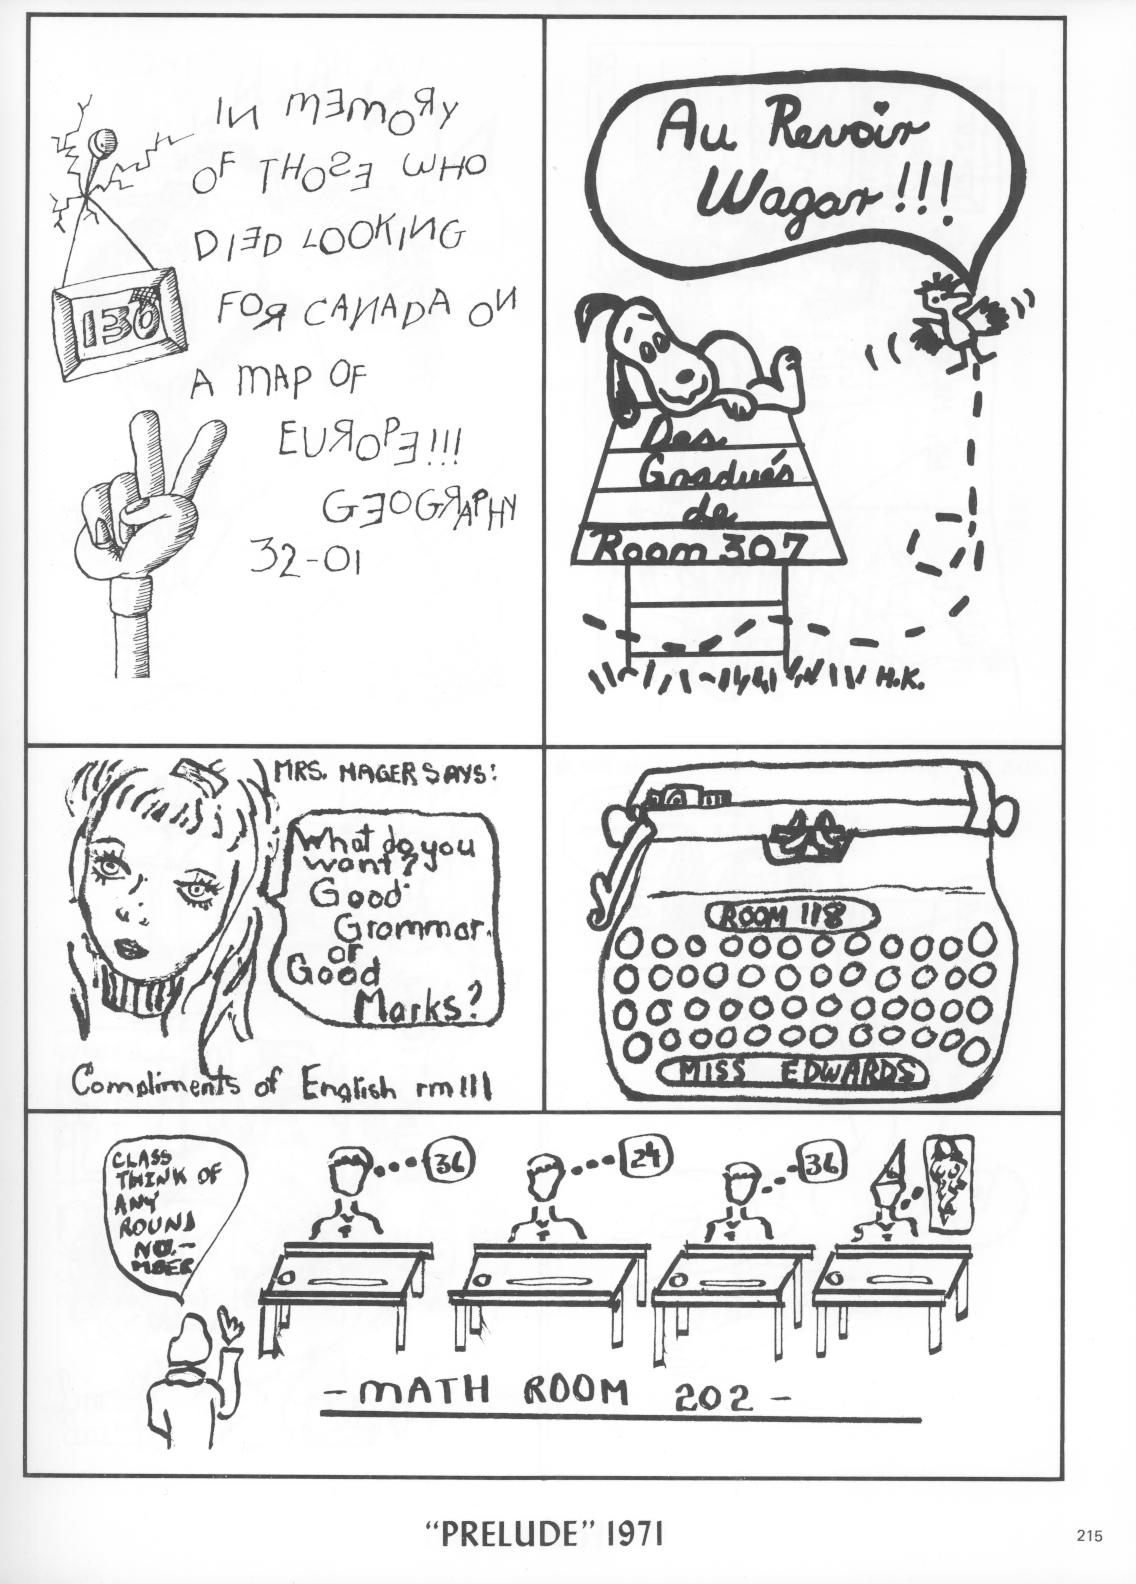 IN MEMORY
OF THOSE WHO
DIED LOOKING
FOR CANADA ON
A MAP OF
EUROPE!!!
GEOGRAPHY
32-01
130
Au Revoir
Wagar!!!
Des
Gradués
de
Room 307
H.K.
MRS. HAGER SAYS:
What do you
want?
Good
Grammar
or
Good
Marks?
Compliments of English rm 111
ROOM 118
MISS EDWARDS
CLASS
THINK OF
ANY
ROUND
NO.-
MBER
36
24
36
- MATH ROOM 202 -
"PRELUDE" 1971
215